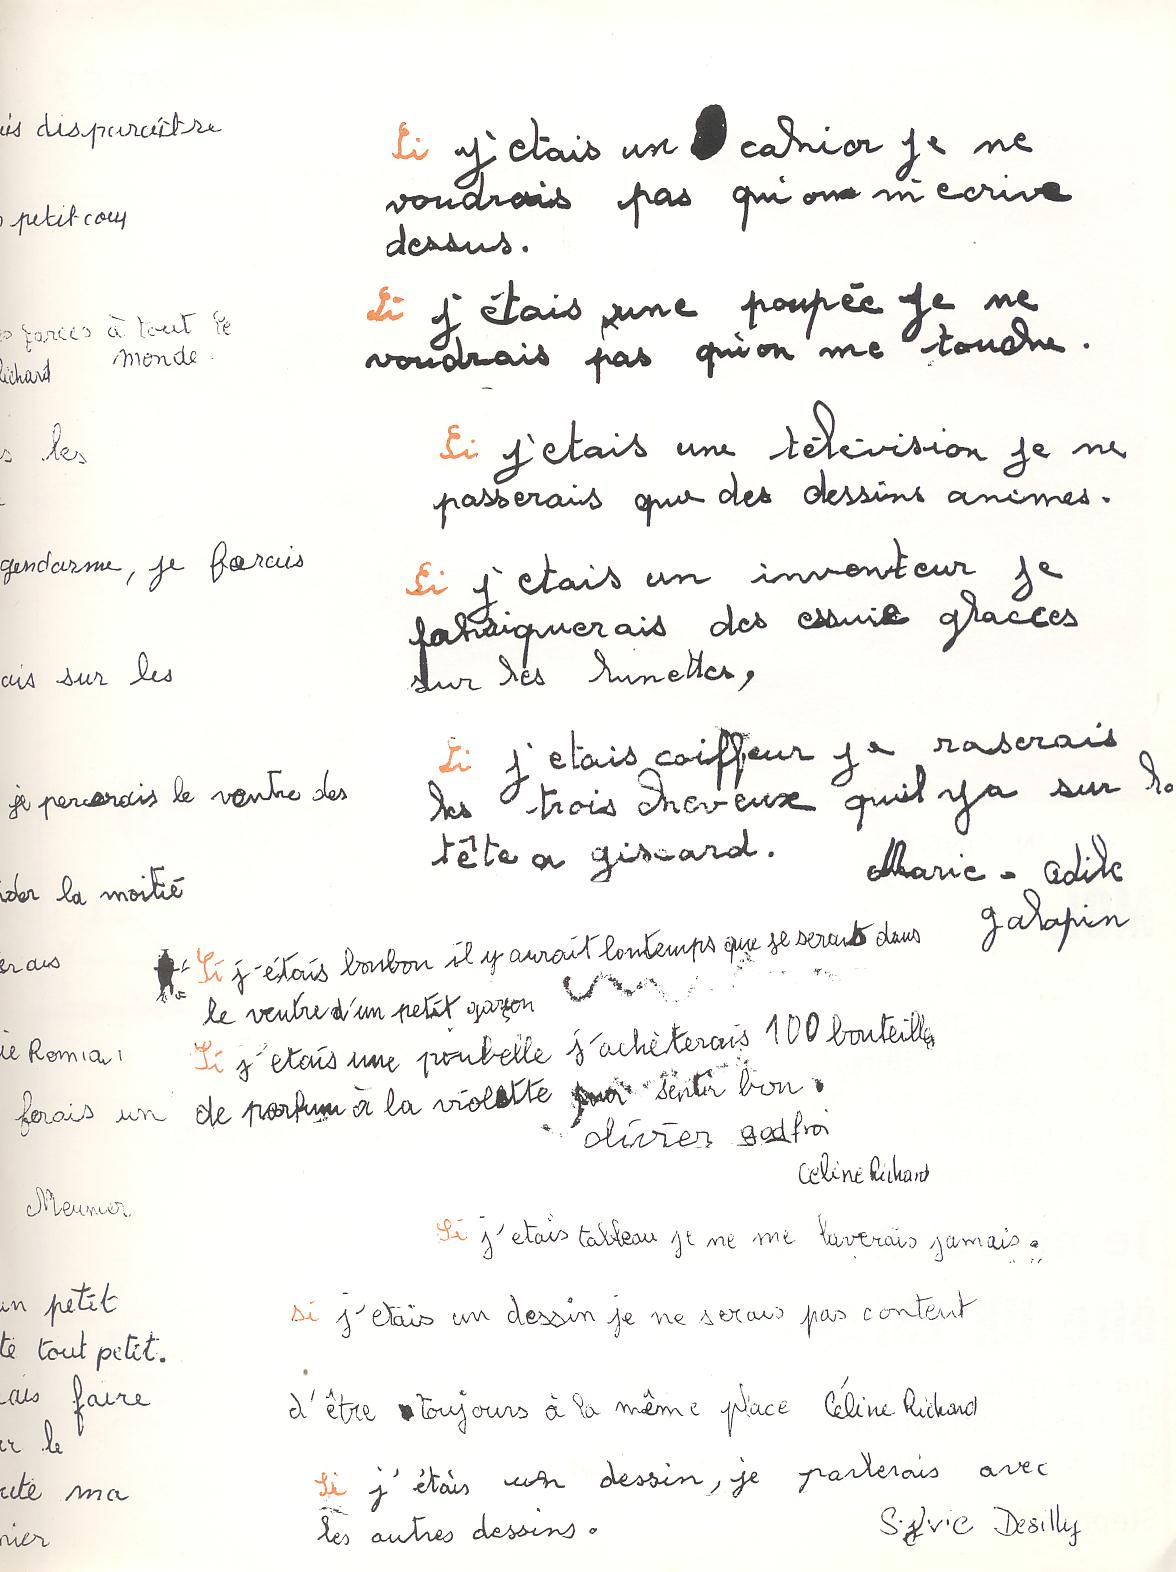 disparaître
petit cou
farces à tout le
monde.
Richard
les
gendarme, je ferais
ais sur les
je percerais le ventre des
ider la moitié
erais
ie Romiai
ferais un
Meunier
un petit
té tout petit.
ais faire
le
ute ma
nier
Si j'etais un cahier je ne
voudrais pas qui on m'ecrive
dessus.
Si j'étais une poupée je ne
voudrais pas qu'on me touche.
Si j'etais une télévision je ne
passerais que des dessins animes.
Si j'etais un inventeur je
fabriquerais des essuie glaces
sur les lunettes,
Si j'etais coiffeur je raserais
les trois cheveux qu'il y a sur la
tête a giscard.
Marie-Odile
galapin
Si j'étais bonbon il y aurait lontemps que je serais dans
le ventre d'un petit garçon
Si j'etais une poubelle j'achèterais 100 bouteilles
de parfum à la violette pour sentir bon.
olivier godfroi
Céline Richard
Si j'etais tableau je ne me laverais jamais.
si j'etais un dessin je ne serais pas content
d'être toujours à la même place Céline Richard
Si j'étais un dessin, je parlerais avec
les autres dessins.
Sylvie Desilly